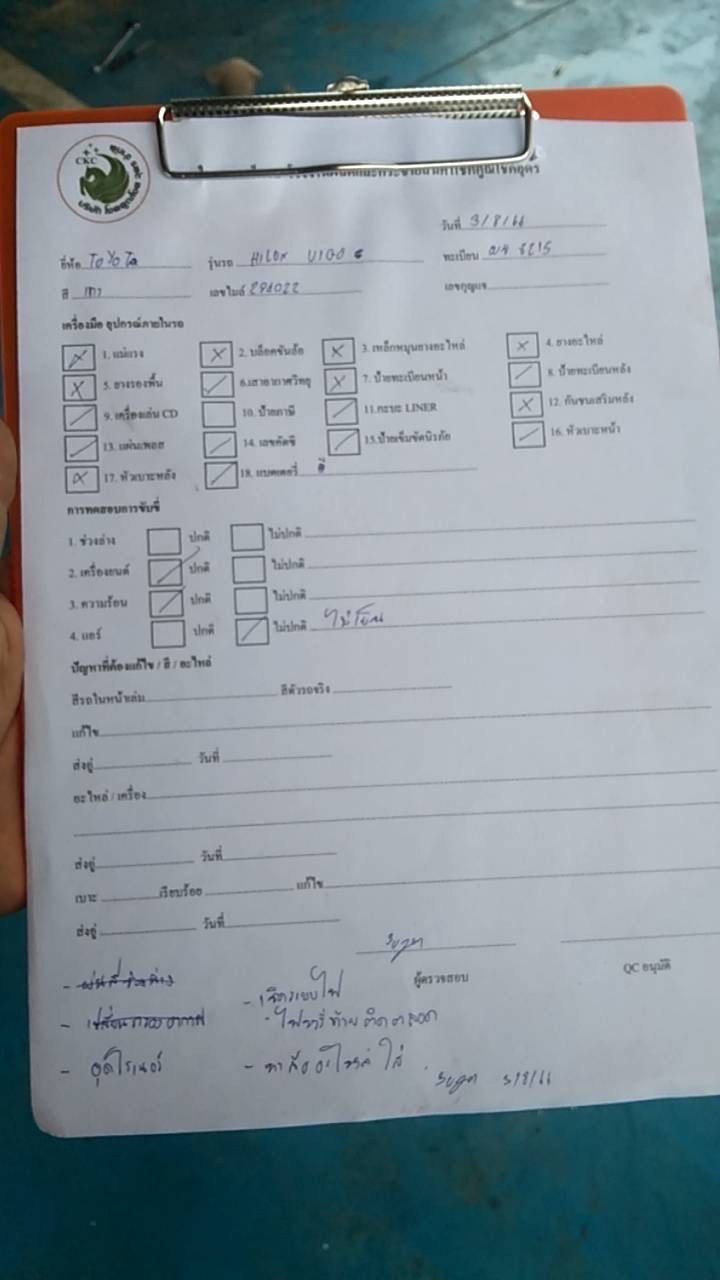 CKC
วันที่ 3/8/66
ยี่ห้อ TOYOTA รุ่นรถ HILUX VIGO ทะเบียน
สี เทา เลขไมล์ เลขกุญแจ
เครื่องมือ อุปกรณ์ภายในรถ
1. แม่แรง 2. บล็อคขันล้อ 3. เหล็กหมุนยางอะไหล่ 4. ยางอะไหล่
5. ยางรองพื้น 6.เสาอากาศวิทยุ 7. ป้ายทะเบียนหน้า 8. ป้ายทะเบียนหลัง
9. เครื่องเล่น CD 10. ป้ายภาษี 11.กะบะ LINER 12. กันชนเสริมหลัง
13. แผ่นเพลท 14. เลขคัสซี 15.ป้ายเข็มขัดนิรภัย 16. หัวเบาะหน้า
17. หัวเบาะหลัง 18. แบตเตอรี่
การทดสอบการขับขี่
1. ช่วงล่าง ปกติ ไม่ปกติ
2. เครื่องยนต์ ปกติ ไม่ปกติ
3. ความร้อน ปกติ ไม่ปกติ
4. แอร์ ปกติ ไม่ปกติ
ปัญหาที่ต้องแก้ไข / สี / อะไหล่
สีรถในหน้าเล่ม สีตัวรถจริง
แก้ไข
ส่งอู่ วันที่
อะไหล่ / เครื่อง
ส่งอู่ วันที่
เบาะ เรียบร้อย แก้ไข
ส่งอู่ วันที่
ผู้ตรวจสอบ QC อนุมัติ
- เช็คระบบไฟ
- เปลี่ยนกรองอากาศ - ไฟหรี่ท้ายติดตลอด
3/8/66